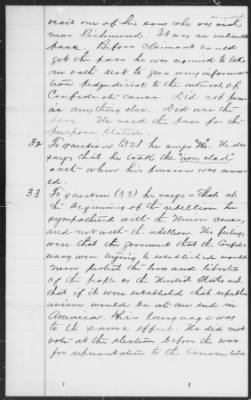 visit one of his sons who was sick
near Richmond. It was an unlimited
pass. Before claimant could
get the pass he was required to take
an oath not to give any informa-
tion prejudicial to the interest of
Confederate cause. Did not
as anything else. Did use the
pass. He used the pass for the
purpose stated.
32 To question (32) he says No. He also
says that he took the iron clad
oath when his pension was
ed.
33 To question (33) he says - That at
the beginning of the rebellion he
sympathized with the Union cause,
and not with the rebellion. His feelings
were that the government that the Confed-
eracy were trying to established would
never protect the lives and liberties
of the people as the United States and
that if it were established that republi-
canism would be at an end in
America. His language was
to the same effect. He did not
vote at the election before the war
for representation to the convention